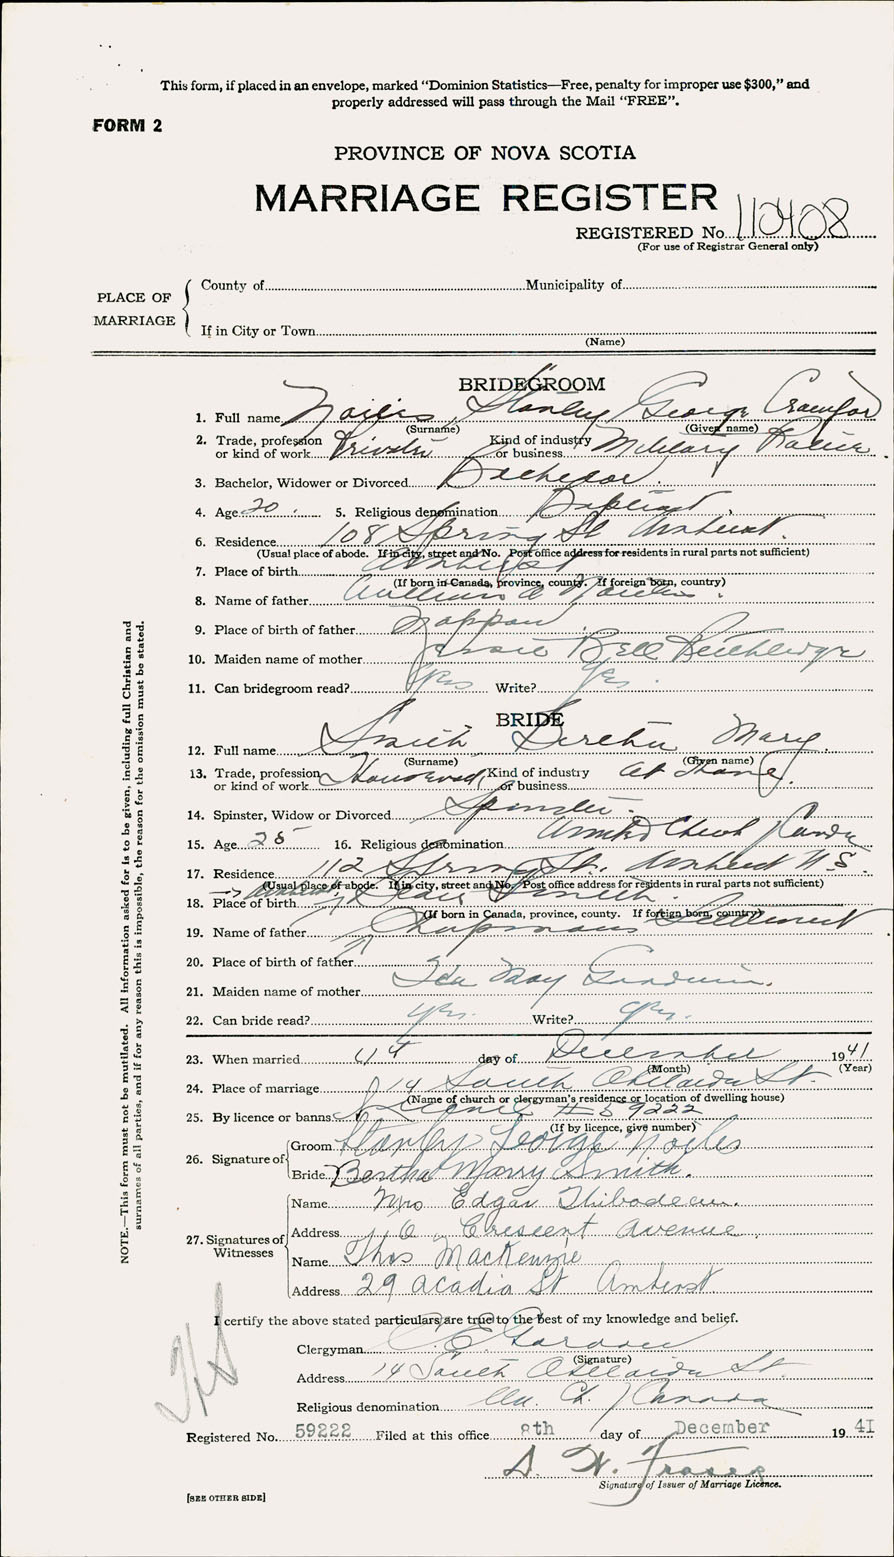 This form, if placed in an envelope, marked "Dominion Statistics—Free, penalty for improper use $300," and
properly addressed will pass through the Mail "FREE".
FORM 2
PROVINCE OF NOVA SCOTIA
MARRIAGE REGISTER
REGISTERED No. 110408
(For use of Registrar General only)
PLACE OF MARRIAGE
County of Municipality of
If in City or Town
(Name)
BRIDEGROOM
1. Full name Noiles Stanley George Crawford
(Surname) (Given name)
2. Trade, profession or kind of work Private Kind of industry or business Military Police
3. Bachelor, Widower or Divorced Bachelor
4. Age 20 5. Religious denomination Baptist
6. Residence 108 Spring St Amherst
(Usual place of abode. If in city, street and No. Post office address for residents in rural parts not sufficient)
7. Place of birth Amherst
(If born in Canada, province, county. If foreign born, country)
8. Name of father William A Noiles
9. Place of birth of father Nappan
10. Maiden name of mother Jessie Bell
11. Can bridegroom read? Yes Write? Yes
BRIDE
12. Full name Smith Bertha Mary
(Surname) (Given name)
13. Trade, profession or kind of work Housework Kind of industry or business at Home
14. Spinster, Widow or Divorced Spinster
15. Age 25 16. Religious denomination United Church Canada
17. Residence 112 Spring St. Amherst N.S.
(Usual place of abode. If in city, street and No. Post office address for residents in rural parts not sufficient)
18. Place of birth Amherst Smith
(If born in Canada, province, county. If foreign born, country)
19. Name of father Chapmans Settlement
20. Place of birth of father
21. Maiden name of mother Ida May Goodwin
22. Can bride read? Yes. Write? Yes.
23. When married day of December 1941
(Month) (Year)
24. Place of marriage 14 South Adelaide St.
(Name of church or clergyman's residence or location of dwelling house)
25. By licence or banns Licence # 59222
(If by licence, give number)
26. Signature of Groom Stanley George Noiles
Bride Bertha Marry Smith.
27. Signatures of Witnesses
Name Mrs Edgar Thibodeau.
Address Crescent Avenue
Name Thos MacKenzie
Address 29 Acadia St Amherst
I certify the above stated particulars are true to the best of my knowledge and belief.
Clergyman
(Signature)
Address 14 South Adelaide St.
Religious denomination Un. Ch. / Canada
Registered No. 59222 Filed at this office 8th day of December 1941
S. W. Fraser
Signature of Issuer of Marriage Licence.
[SEE OTHER SIDE]
NOTE.—This form must not be mutilated. All information asked for is to be given, including full Christian and
surnames of all parties, and if for any reason this is impossible, the reason for the omission must be stated.